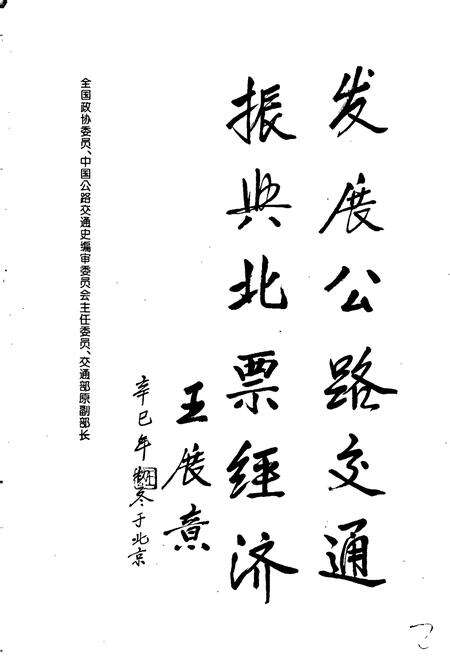 发展公路交通
振兴北票经济
王展意
辛巳年冬于北京
全国政协委员、中国公路交通史编审委员会主任委员、交通部原副部长